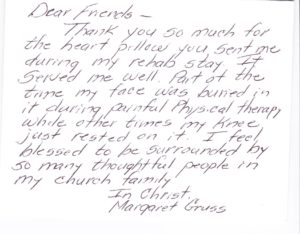 Dear Friends -
Thank you so much for
the heart pillow you sent me
during my rehab stay. It
served me well. Part of the
time my face was buried in
it during painful Physical therapy,
while other times my knee
just rested on it. I feel
blessed to be surrounded by
so many thoughtful people in
my church family.
In Christ,
Margaret Gruss